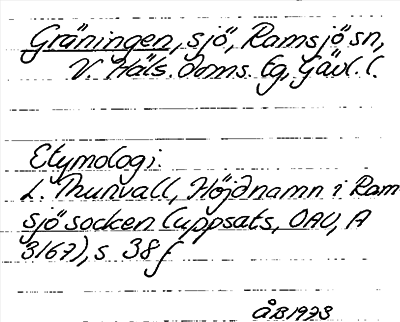 Gräningen, sjö, Ramsjö sn,
V. Häls. doms. Eg, Gävl. l.
Etymologi.
L. Thunvall, Höjdnamn i Ram
sjö socken (uppsats, OAU, A
3167), s 38 f
ÅB 1973